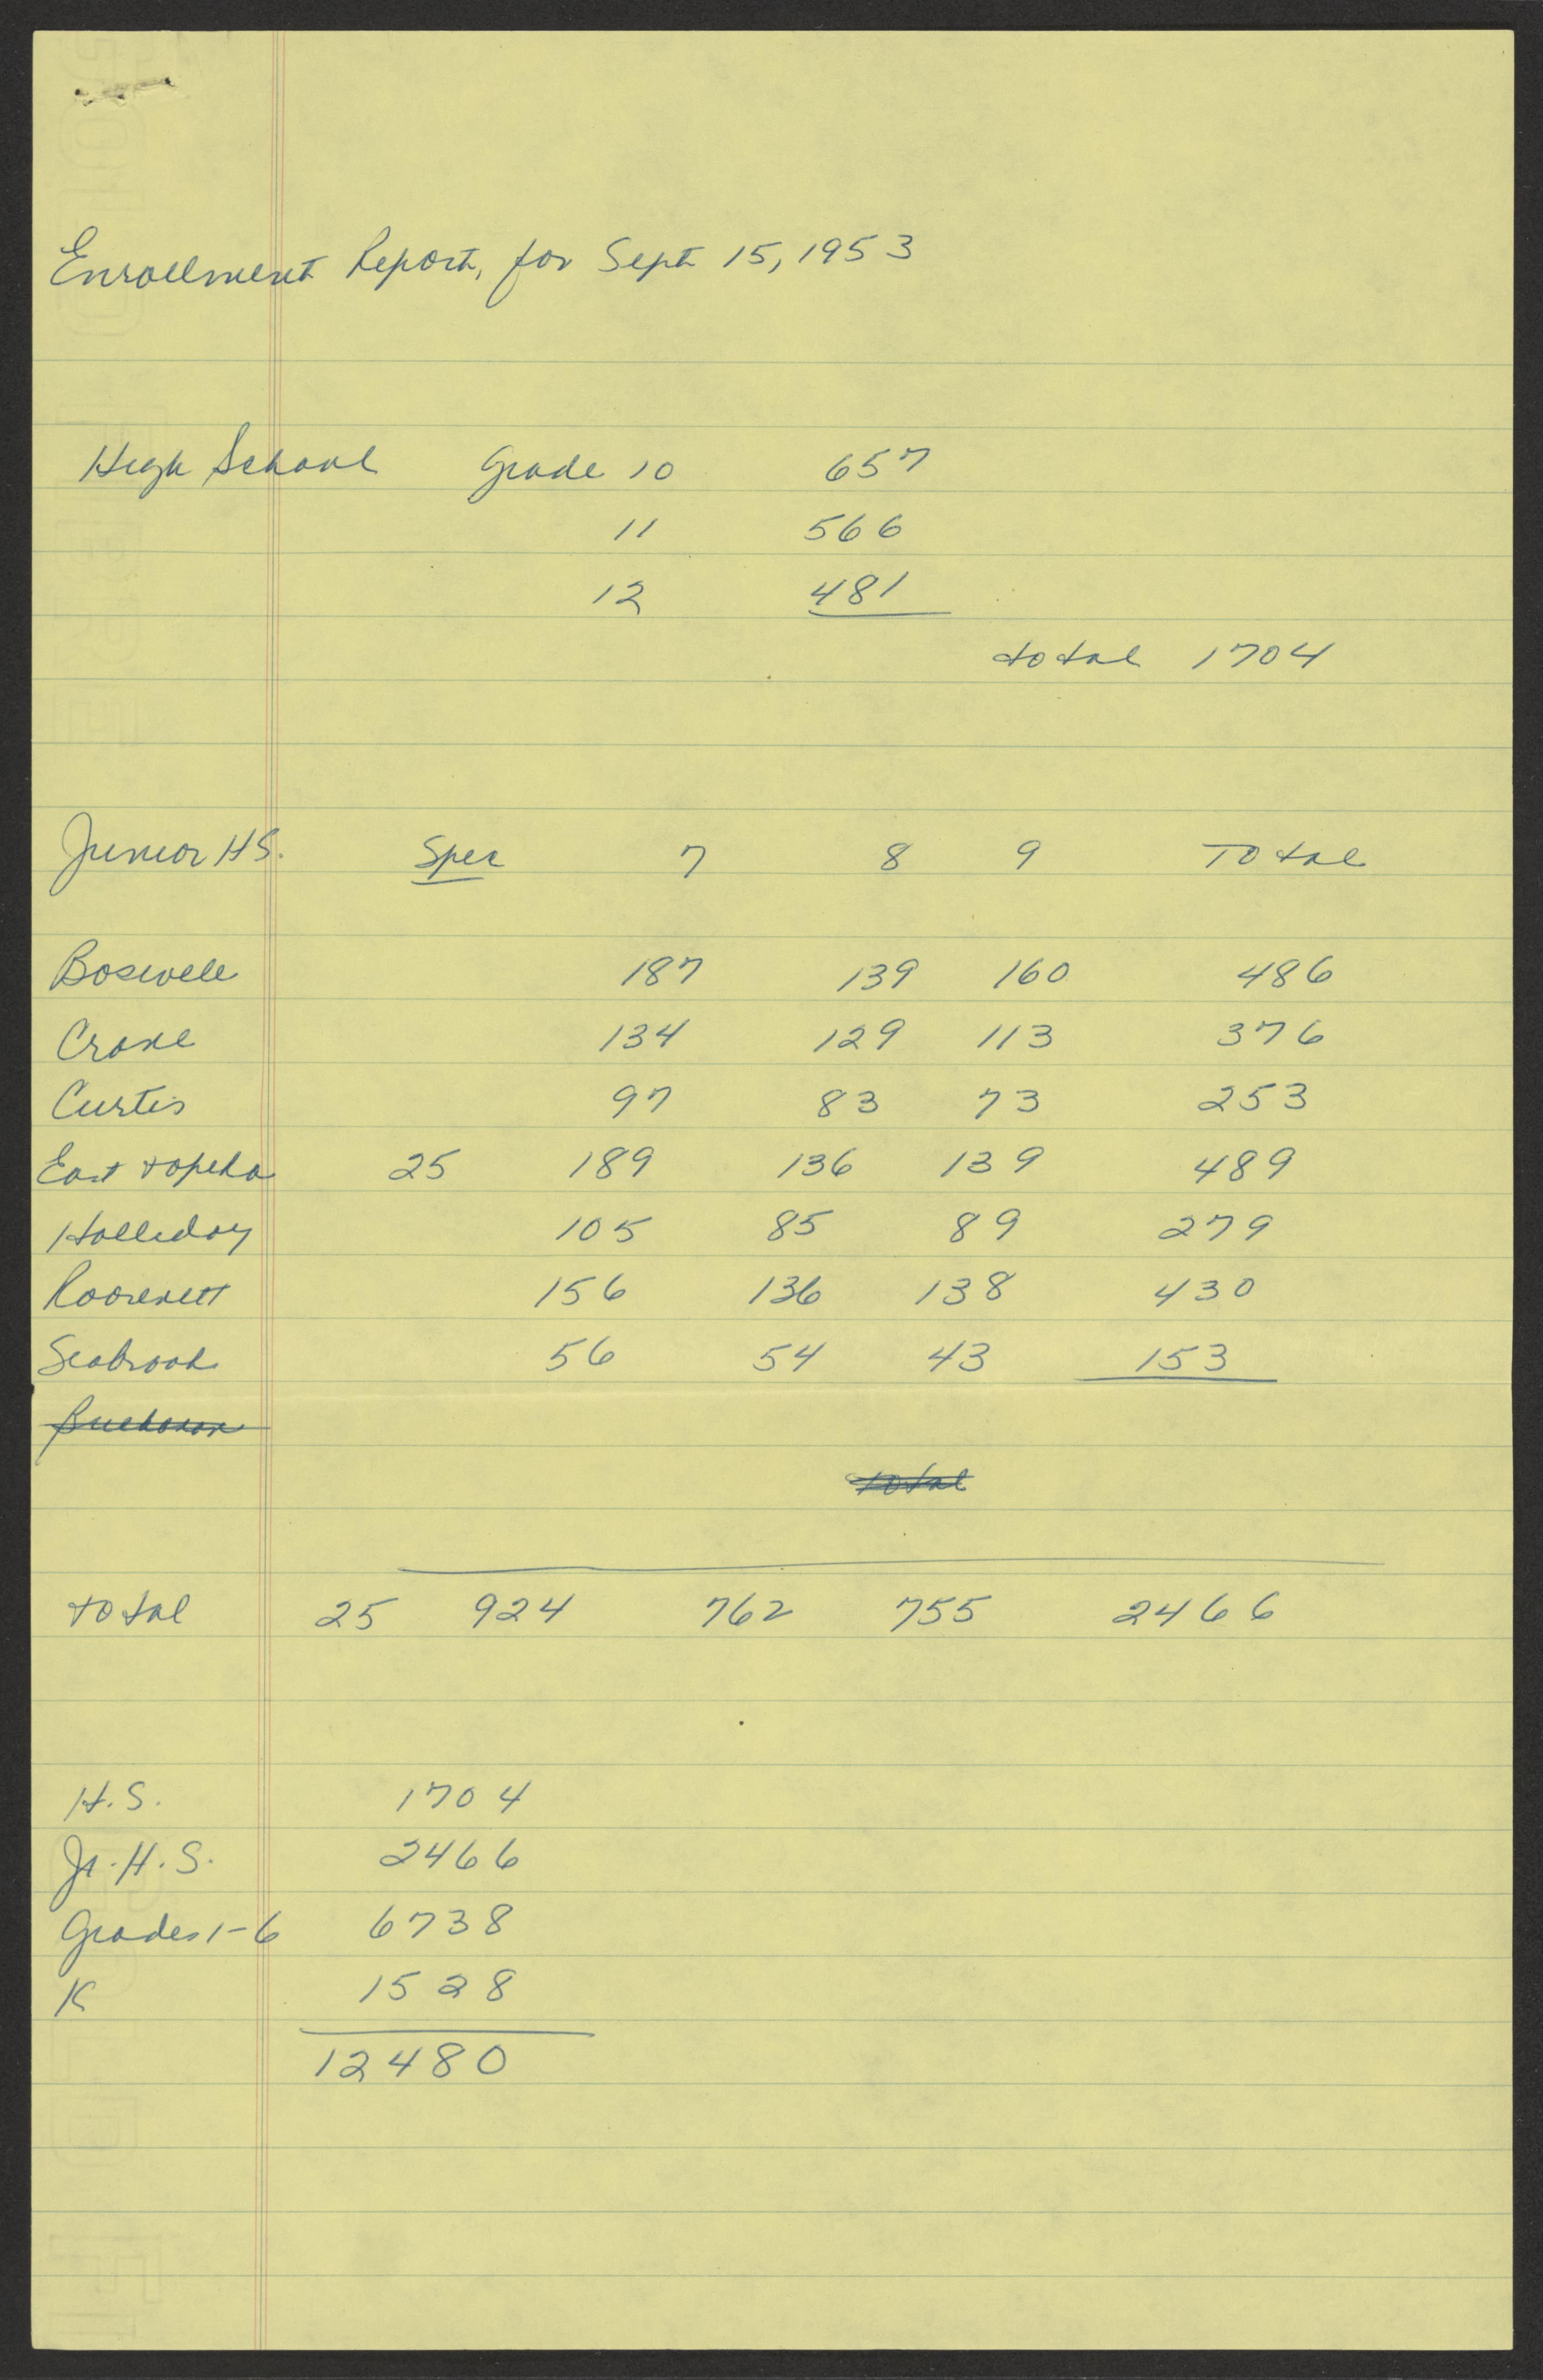 Enrollment Report, for Sept 15, 1953
High School Grade 10 657
11 566
12 481
total 1704
Junior H.S. Spec 7 8 9 Total
Boswell 187 139 160 486
Crane 134 129 113 376
Curtis 97 83 73 253
East Topeka 25 189 136 139 489
Holliday 105 85 89 279
Roosevelt 156 136 138 430
Seabrook 56 54 43 153
Buchanan
total
total 25 924 762 755 2466
H.S. 1704
Jr. H.S. 2466
Grades 1-6 6738
K 1528
12480